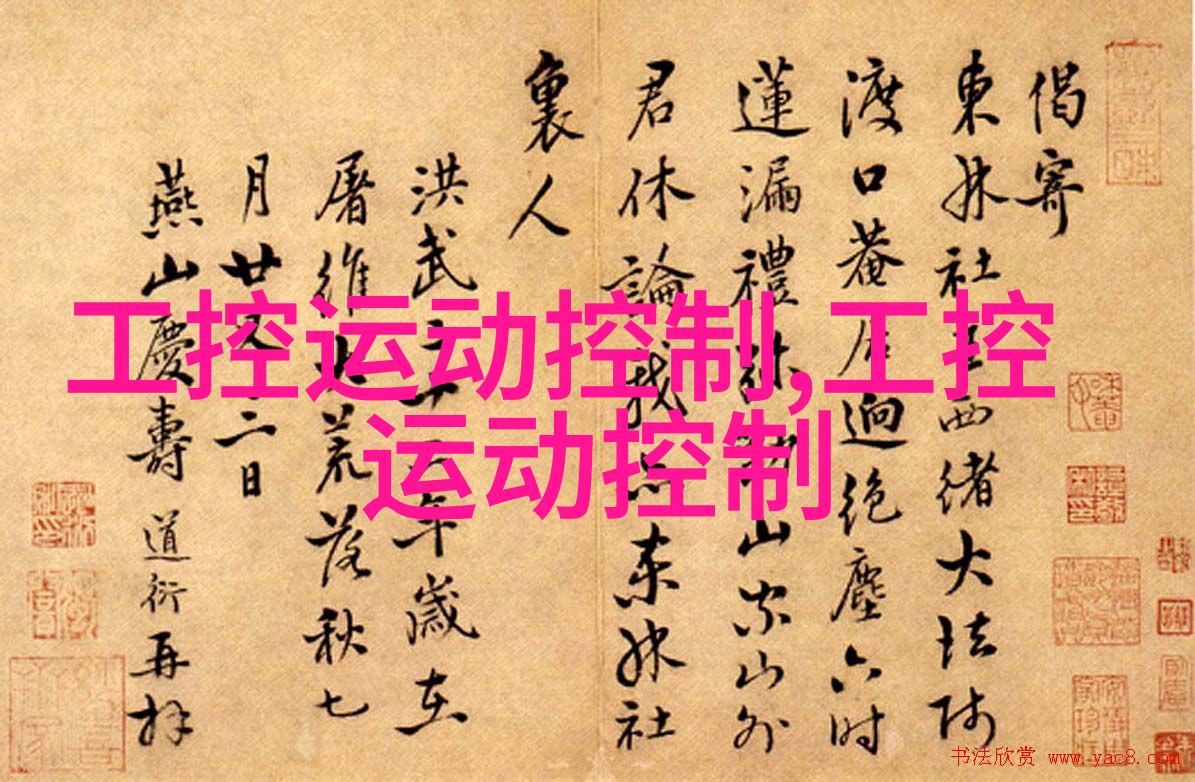 偈寄
東林社西緒大法師
渡口菴居迥絶塵六時
蓮漏禮弥山家山外
君休論我亦東林社
裏人
洪武二年歲在
屠維大荒落秋七
月廿又二日
燕山慶壽道衍再拜
工控运动控制,工控
运动控制
书法欣赏 www.yac8.com